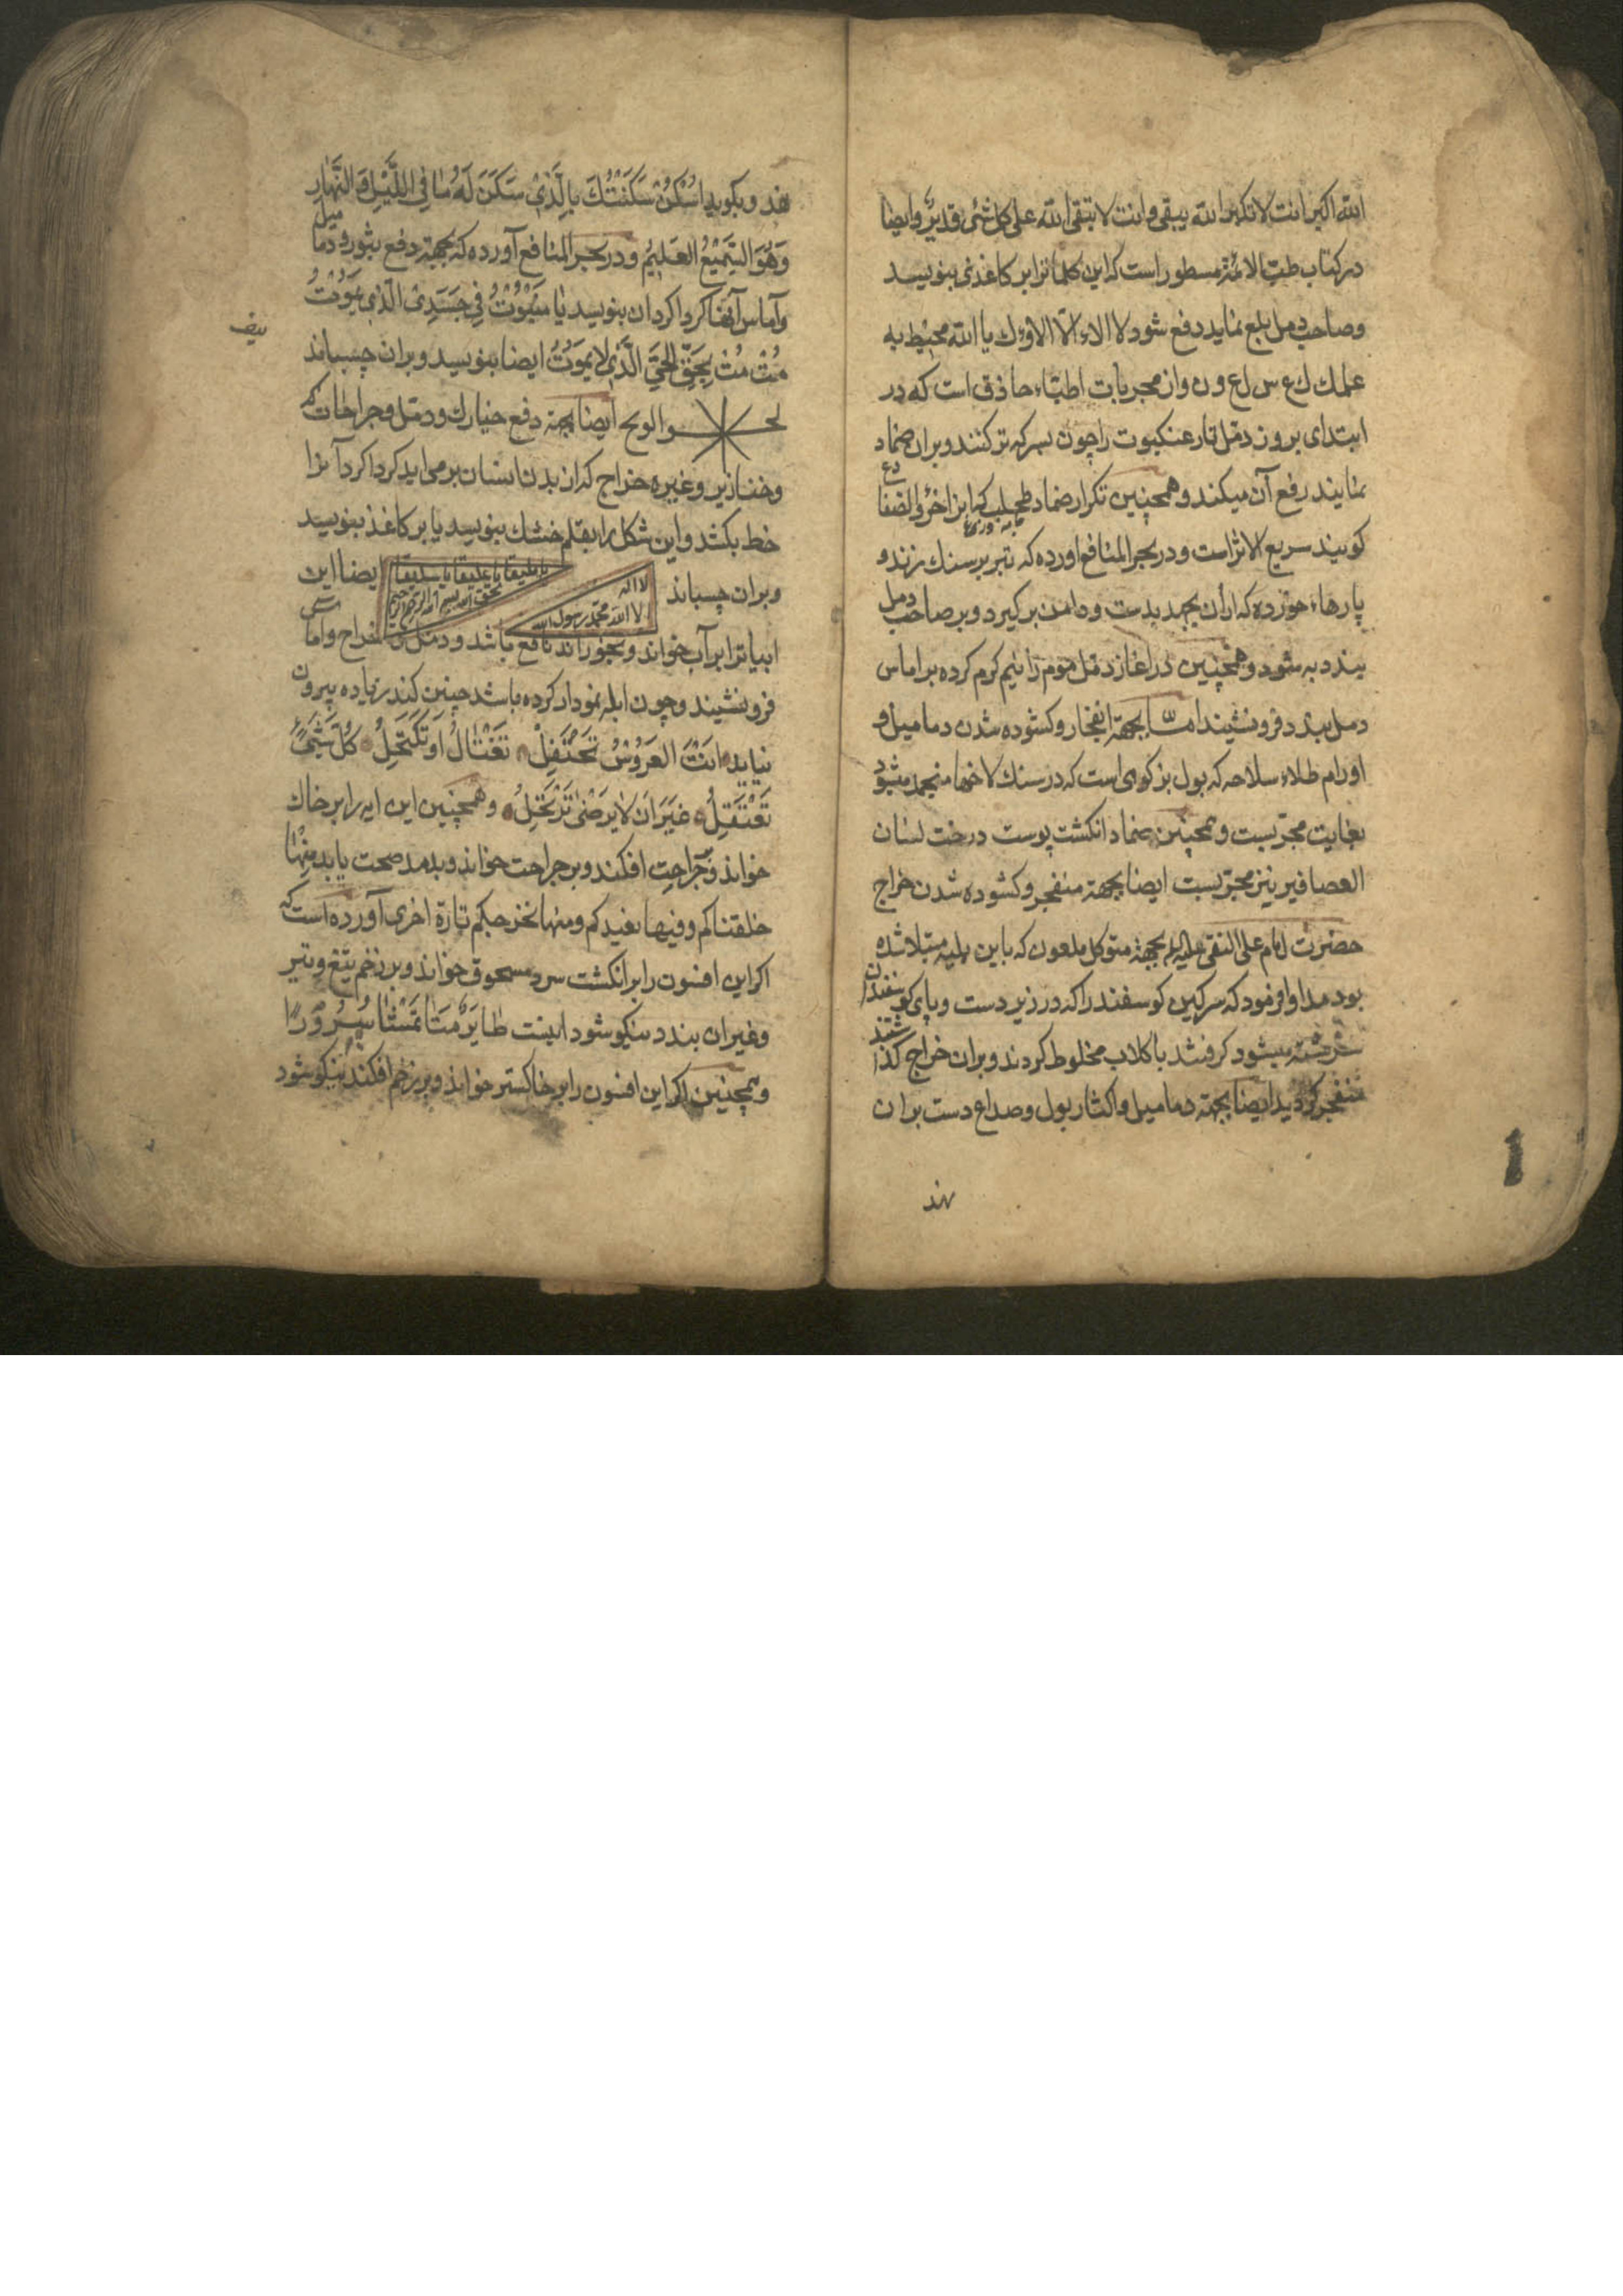 الله اکبر انت لا تکبر الله یبقی و انت لا تبقی الله علی کل شئ قدیر و ایضا
در کتاب طب الائمة مسطور است که این کلماترا بر کاغذی بنویسد
و صاحب دمل بلع نماید دفع شود لا الاء الا الاؤك یا الله محیط به
علمك ك ع س ل ع و ن و از مجربات اطباء حاذق است که در
ابتدای بروز دمل تار عنکبوت را چون بسرکه تر کنند و بران ضماد
نمایند رفع آن میکند و همچنین تکرار ضماد طحلب که انرا خرؤ الضفادع
جامه وزغ
کویند سریع الاثر است و در بحر المنافع اورده که تبر بر سنك زنند و
پارهاء خورده که ازان بجهد بدست و دامن برکیرد و بر صاحب دمل
بندد به شود و همچنین در اغاز دمل موم را نیم کرم کرده بر اماس
دمل بندد فرو نشیند اما بجهة انفجار و کشوده شدن دمامیل و
اورام طلاء سلاحه که بول بز کوهی است که در سنك لاخها منجمد میشود
بغایت مجربست و همچنین ضماد انکشت پوست درخت لسان
العصافیر نیز مجربست ایضا بجهة منفجر و کشوده شدن خراج
حضرت امام علی النقی علیه بجهة متوکل ملعون که باین بلیه مبتلا شده
بود مداوا فرمود که سرکین کوسفند را که در زیر دست و پای کوسفندان
سرشته میشود کرفتند با کلاب مخلوط کردند و بران خراج کذاشتند
منفجر کردید ایضا بجهة دمامیل و اکثار بول و صداع دست بران
نهد
نهد و بکوید اُسْکُنْ سَکَنْتُكَ بِالَّذِیْ سَکَنَ لَهُ مَا فِی اللَّیْلِ وَ النَّهَارِ
وَهُوَ السَّمِیْعُ العَلِیْمُ و در بحر المنافع آورده که بجهة دفع بثور و دمامیل
و آماس آنها کرداکرد ان بنویسد یَا مَیْمُوْتُ فِی جَسَدِیْ الَّذِی یَمُوْتُ
مُتْ مُتْ بِحَقِّ الْحَیِّ الَّذِی لَا یَمُوْتُ ایضا بنویسد و بران چسباند
ایضا بجهة دفع خیارك و دمل و جراحات که
و خنازیر و غیره خراج که از بدن انسان بر می اید کرداکرد آنرا
خط بکشد و این شکل را بقلم خشك بنویسد یا بر کاغذ بنویسد
و بران چسباند
لا اله الا الله محمد رسول الله
یا ملیقا یا علیقا یا سلیقا
بحق بسم الله الرحمن الرحیم
ایضا این
ابیاترا بر آب خواند و بخوراند نافع باشد و دمل و خراج و اماس
فرو نشیند و چون ابله نمودار کرده باشد چنین کند زیاده بیرون
نیاید اَنْتَ العَرُوْسُ تَحْتَفِلْ تَغْتَالُ اَو تَکْتَحِلُ کُلَّ شَیْءٍ
تَفْتَعِلُ غَیْرَ اَنْ لَا یَرْضٰی تَرْتَحِلُ و همچنین این ایه را بر خاك
خواند و بر جراحت افکند و بر جراحت خواند و بدمد صحت یابد مِنْهَا
خلقناکم و فیها نعیدکم و منها نخرجکم تارة اخری آورده است که
اکر این افسون را بر انکشت سرد مسحوق خواند و بر زخم تیغ و تیر
و غیر ان بندد نیکو شود اینست
و همچنین اکر این افسون را بر خاکستر خواند و بر زخم افکند نیکو شود